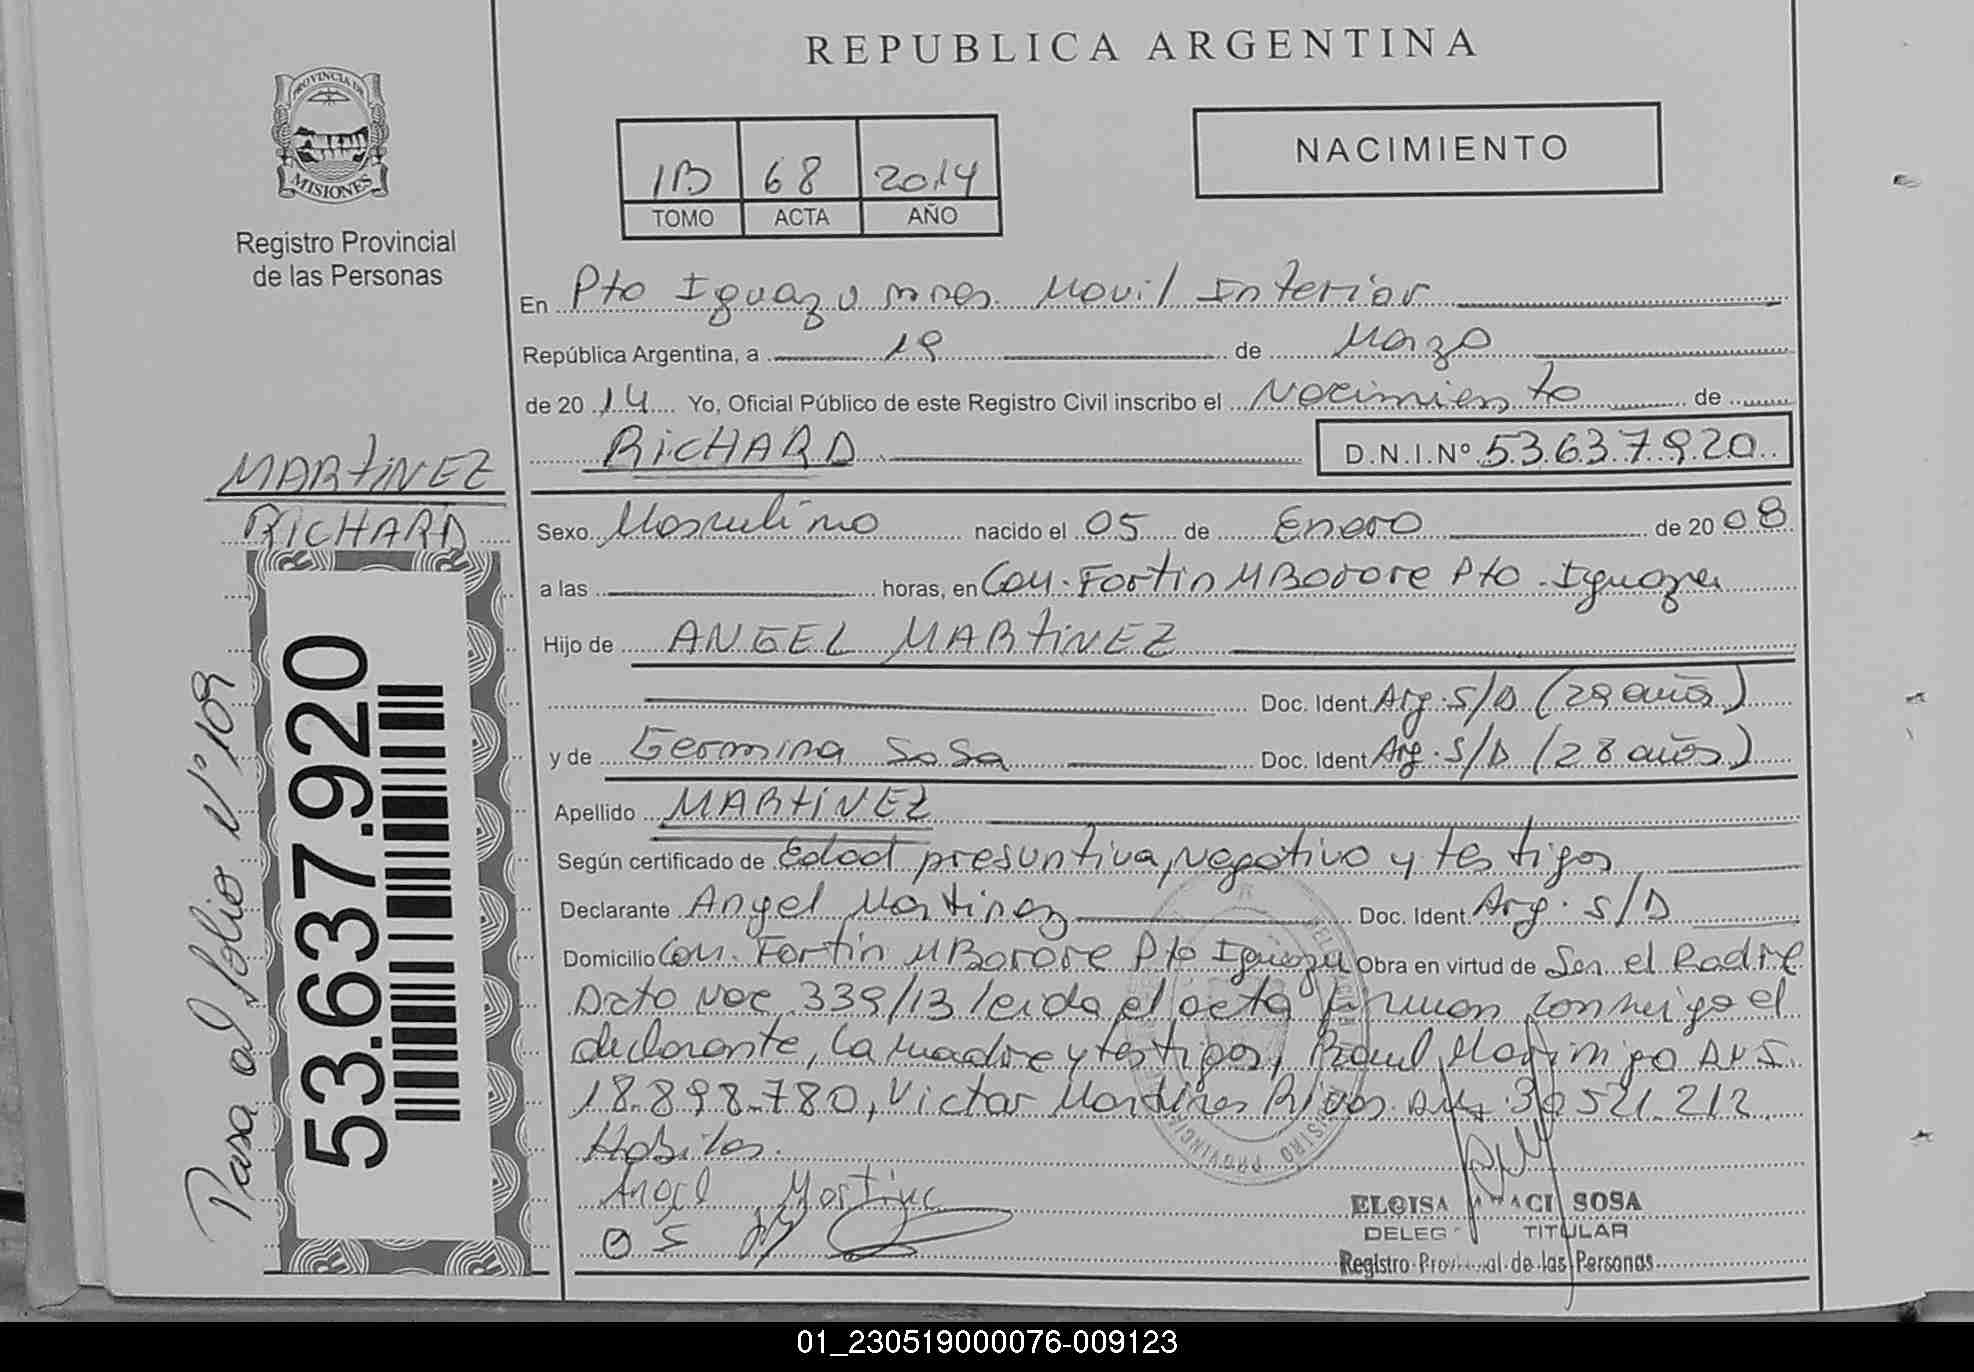 REPUBLICA ARGENTINA
PROVINCIA DE
MISIONES
Registro Provincial
de las Personas
1B 68 2014
TOMO ACTA AÑO
NACIMIENTO
En Pto Iguazu mnes. Movil Interior
República Argentina, a 19 de Marzo
de 2014 Yo, Oficial Público de este Registro Civil inscribo el Nacimiento de
RICHARD D.N.I.Nº 53.637.920
MARTINEZ
RICHARD
Sexo Masculino nacido el 05 de Enero de 2008
a las horas, en Com. Fortin MBorore Pto. Iguazu
Hijo de ANGEL MARTINEZ
Doc. Ident. Arg. S/D (29 años)
y de Germina Sosa Doc. Ident. Arg. S/D (28 años)
Apellido MARTINEZ
Según certificado de Edad presuntiva, negativo y testigos
Declarante Angel Martinez Doc. Ident. Arg. S/D
Domicilio Com. Fortin MBorore Pto Iguazu Obra en virtud de Ser el Padre
Dcto Nac 339/13 leida el acta firman conmigo el
declarante, la madre y testigos, Raul DNI
18.898.780, Victor Martines Rivas DNI 521.212
Habiles.
Angel Martine
ELOISA SOSA
DELEG TITULAR
Registro Provincial de las Personas
Pasa al folio Nº 109
53.637.920
01_230519000076-009123